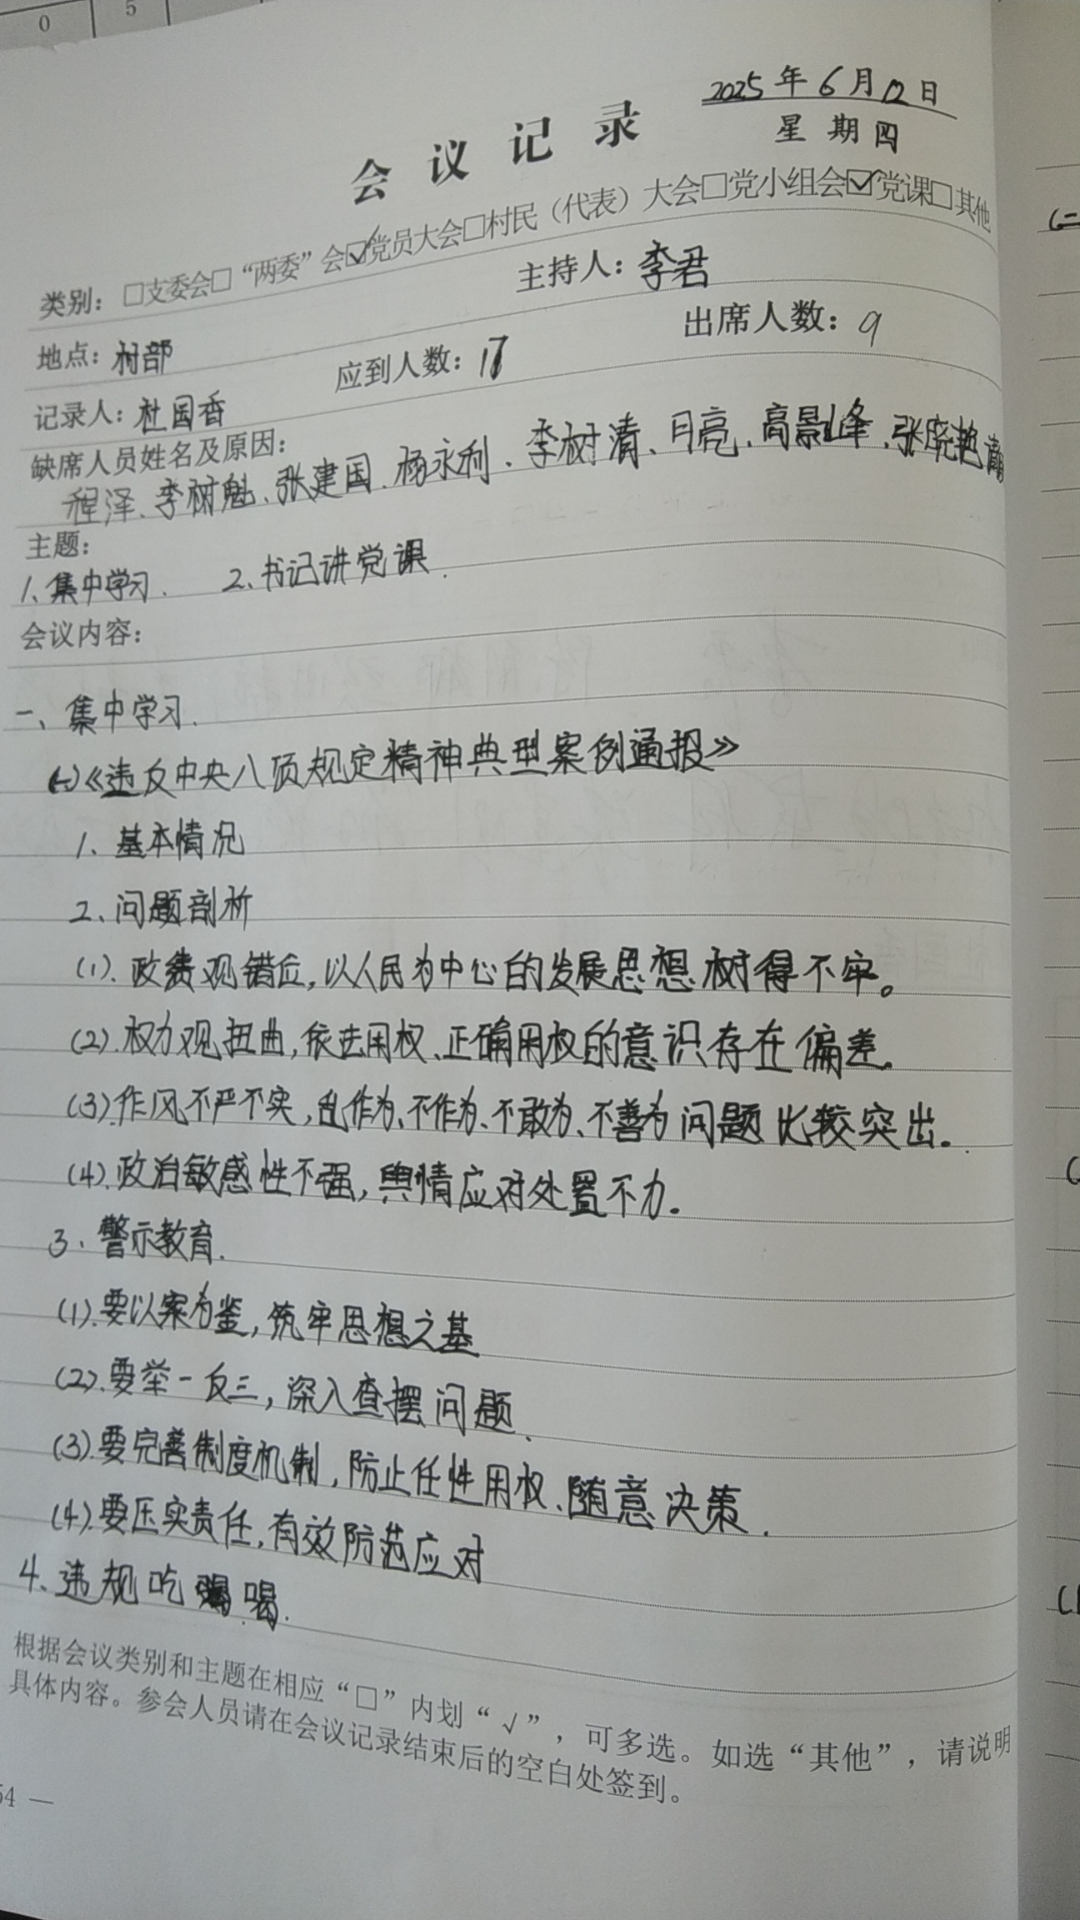 0 5
2025年6月12日
星期四
会议记录
类别：□支委会□“两委”会☑党员大会□村民（代表）大会□党小组会☑党课□其他
地点：村部 主持人：李君
记录人：杜国香 应到人数：17 出席人数：9
缺席人员姓名及原因：
程泽、李树魁、张建国、杨永利、李树清、月亮、高景峰、张晓艳
主题：
1、集中学习. 2、书记讲党课.
会议内容：
一、集中学习.
(一)《违反中央八项规定精神典型案例通报》
1、基本情况
2、问题剖析
(1).政绩观错位,以人民为中心的发展思想树得不牢。
(2).权力观扭曲,依法用权、正确用权的意识存在偏差。
(3).作风不严不实,乱作为、不作为、不敢为、不善为问题比较突出.
(4).政治敏感性不强,舆情应对处置不力。
3、警示教育.
(1).要以案为鉴,筑牢思想之基
(2).要举一反三,深入查摆问题.
(3).要完善制度机制,防止任性用权、随意决策.
(4).要压实责任,有效防范应对
4、违规吃喝.
根据会议类别和主题在相应“□”内划“√”，可多选。如选“其他”，请说明
具体内容。参会人员请在会议记录结束后的空白处签到。
54 —